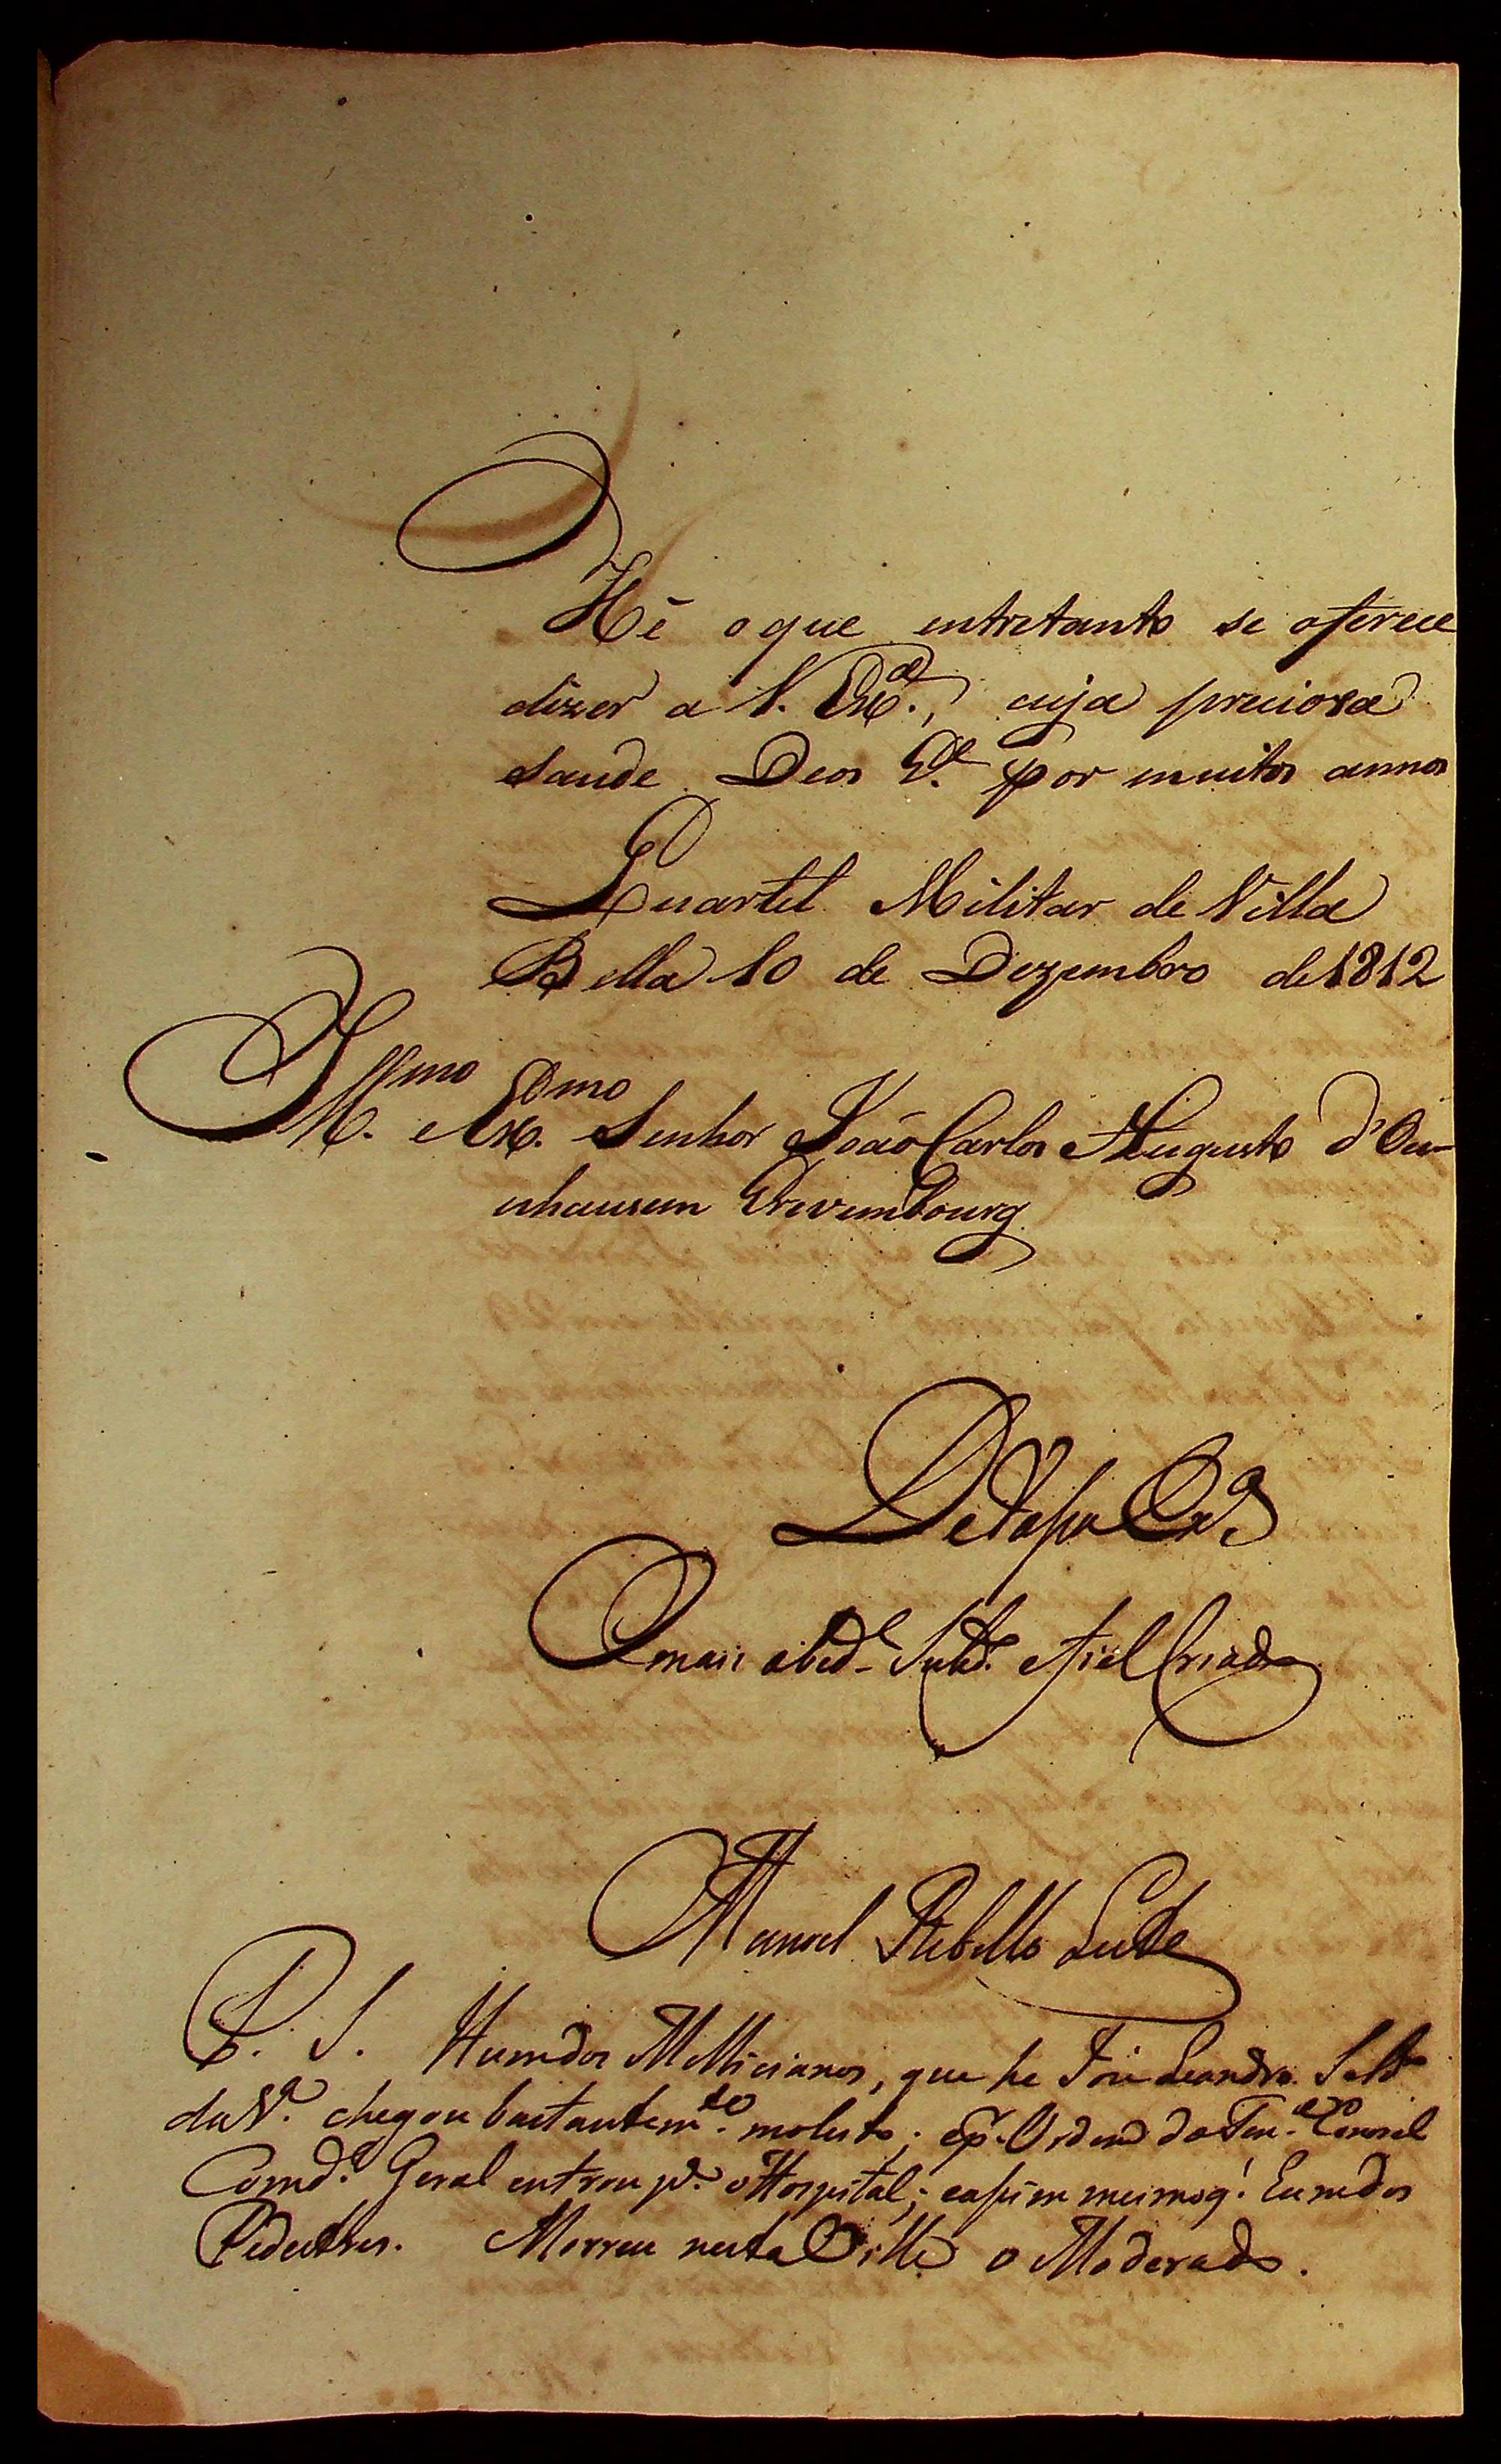 Hé o que entretanto se oferece
dizer a V. Exª., cuja preciosa
saude Deos G.e por muitos annos
Quartel Militar de Villa
Bella 10 de Dezembro de 1812
Illmo. e Exmo. Senhor João Carlos Augusto d'Ou-
nhausem Grevembourg
De Vossa Exª
O mais obed.e Subd.o e fiel Criado
Manoel Rebello Leite
P. S. Hum dos Millicianos, que he Leandro Sold.o
da V.ª chegou bastantem.te molesto; e p.r Ordem do Ten.e Coronel
Comd.e Geral entrou p.ª o Hospital; e assim mesmo q.' hum dos
Pedestres. Morreu nesta Villa o Moderado.